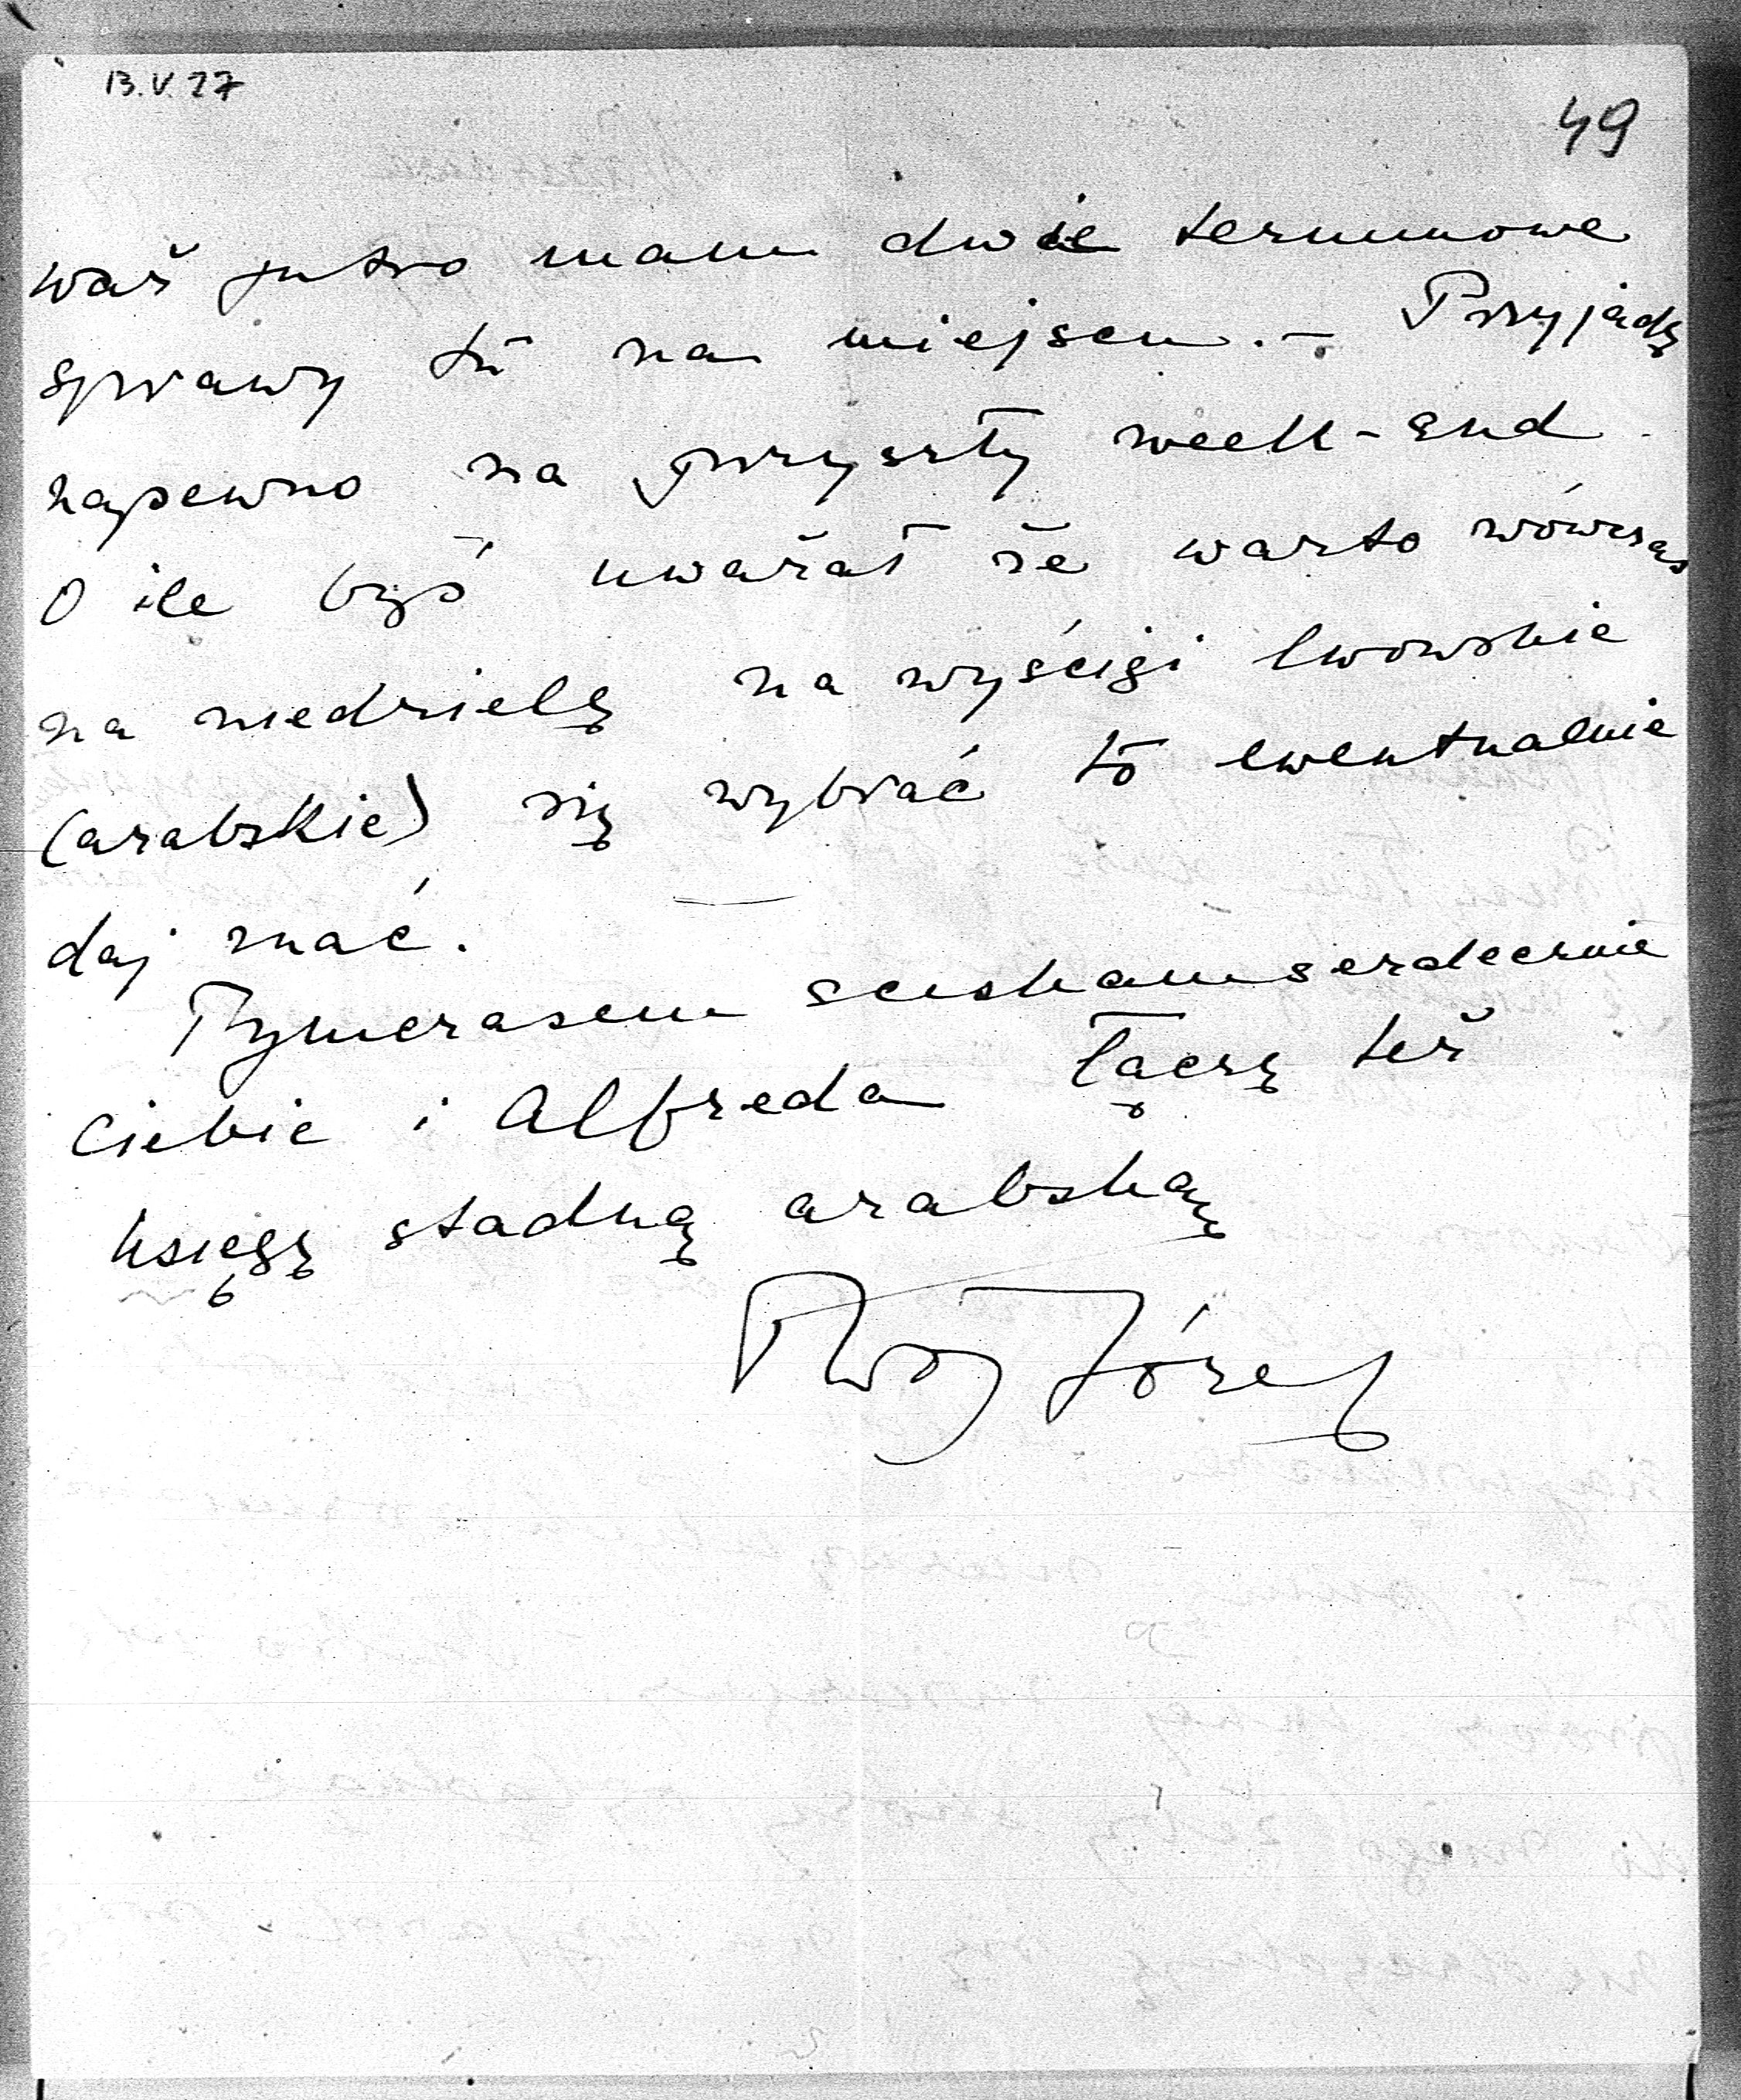 13.V.27
49
waż jutro mam dwie terminowe
sprawy tu na miejscu. – Przyjadę
napewno na przyszły week-end.
O ile byś uważał że warto wówczas
na niedzielę na wyścigi lwowskie
(arabskie) się wybrać to ewentualnie
daj znać.
Tymczasem sciskam serdecznie
Ciebie i Alfreda łączę też
księgę stadną arabską
Twój Józef